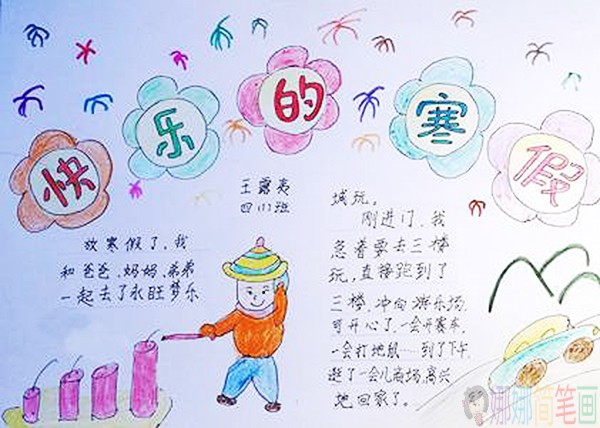 快乐的寒假
王露夷
四(1)班
放寒假了，我
和爸爸、妈妈、弟弟
一起去了永旺梦乐
城玩。
刚进门，我
急着要去三楼
玩，直接跑到了
三楼，冲向游乐场，
可开心了，一会开赛车，
一会打地鼠……到了下午，
逛了一会儿商场，高兴
地回家了。
娜娜简笔画